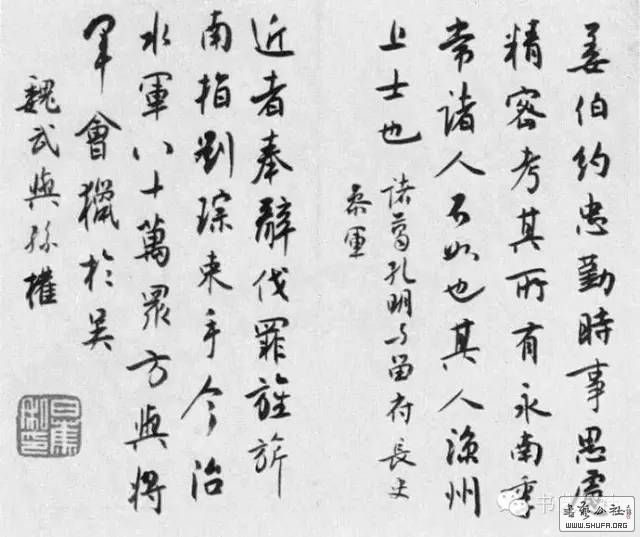 姜伯約忠勤時事思慮
精密考其所有永南季
常諸人不如也其人涼州
上士也 諸葛孔明与留府長史
參軍
近者奉辭伐罪旌旂
南指劉琮束手今治
水軍八十萬眾方與將
軍會獵於吳
魏武與孫權
书
書艺公社
WWW.SHUFA.ORG